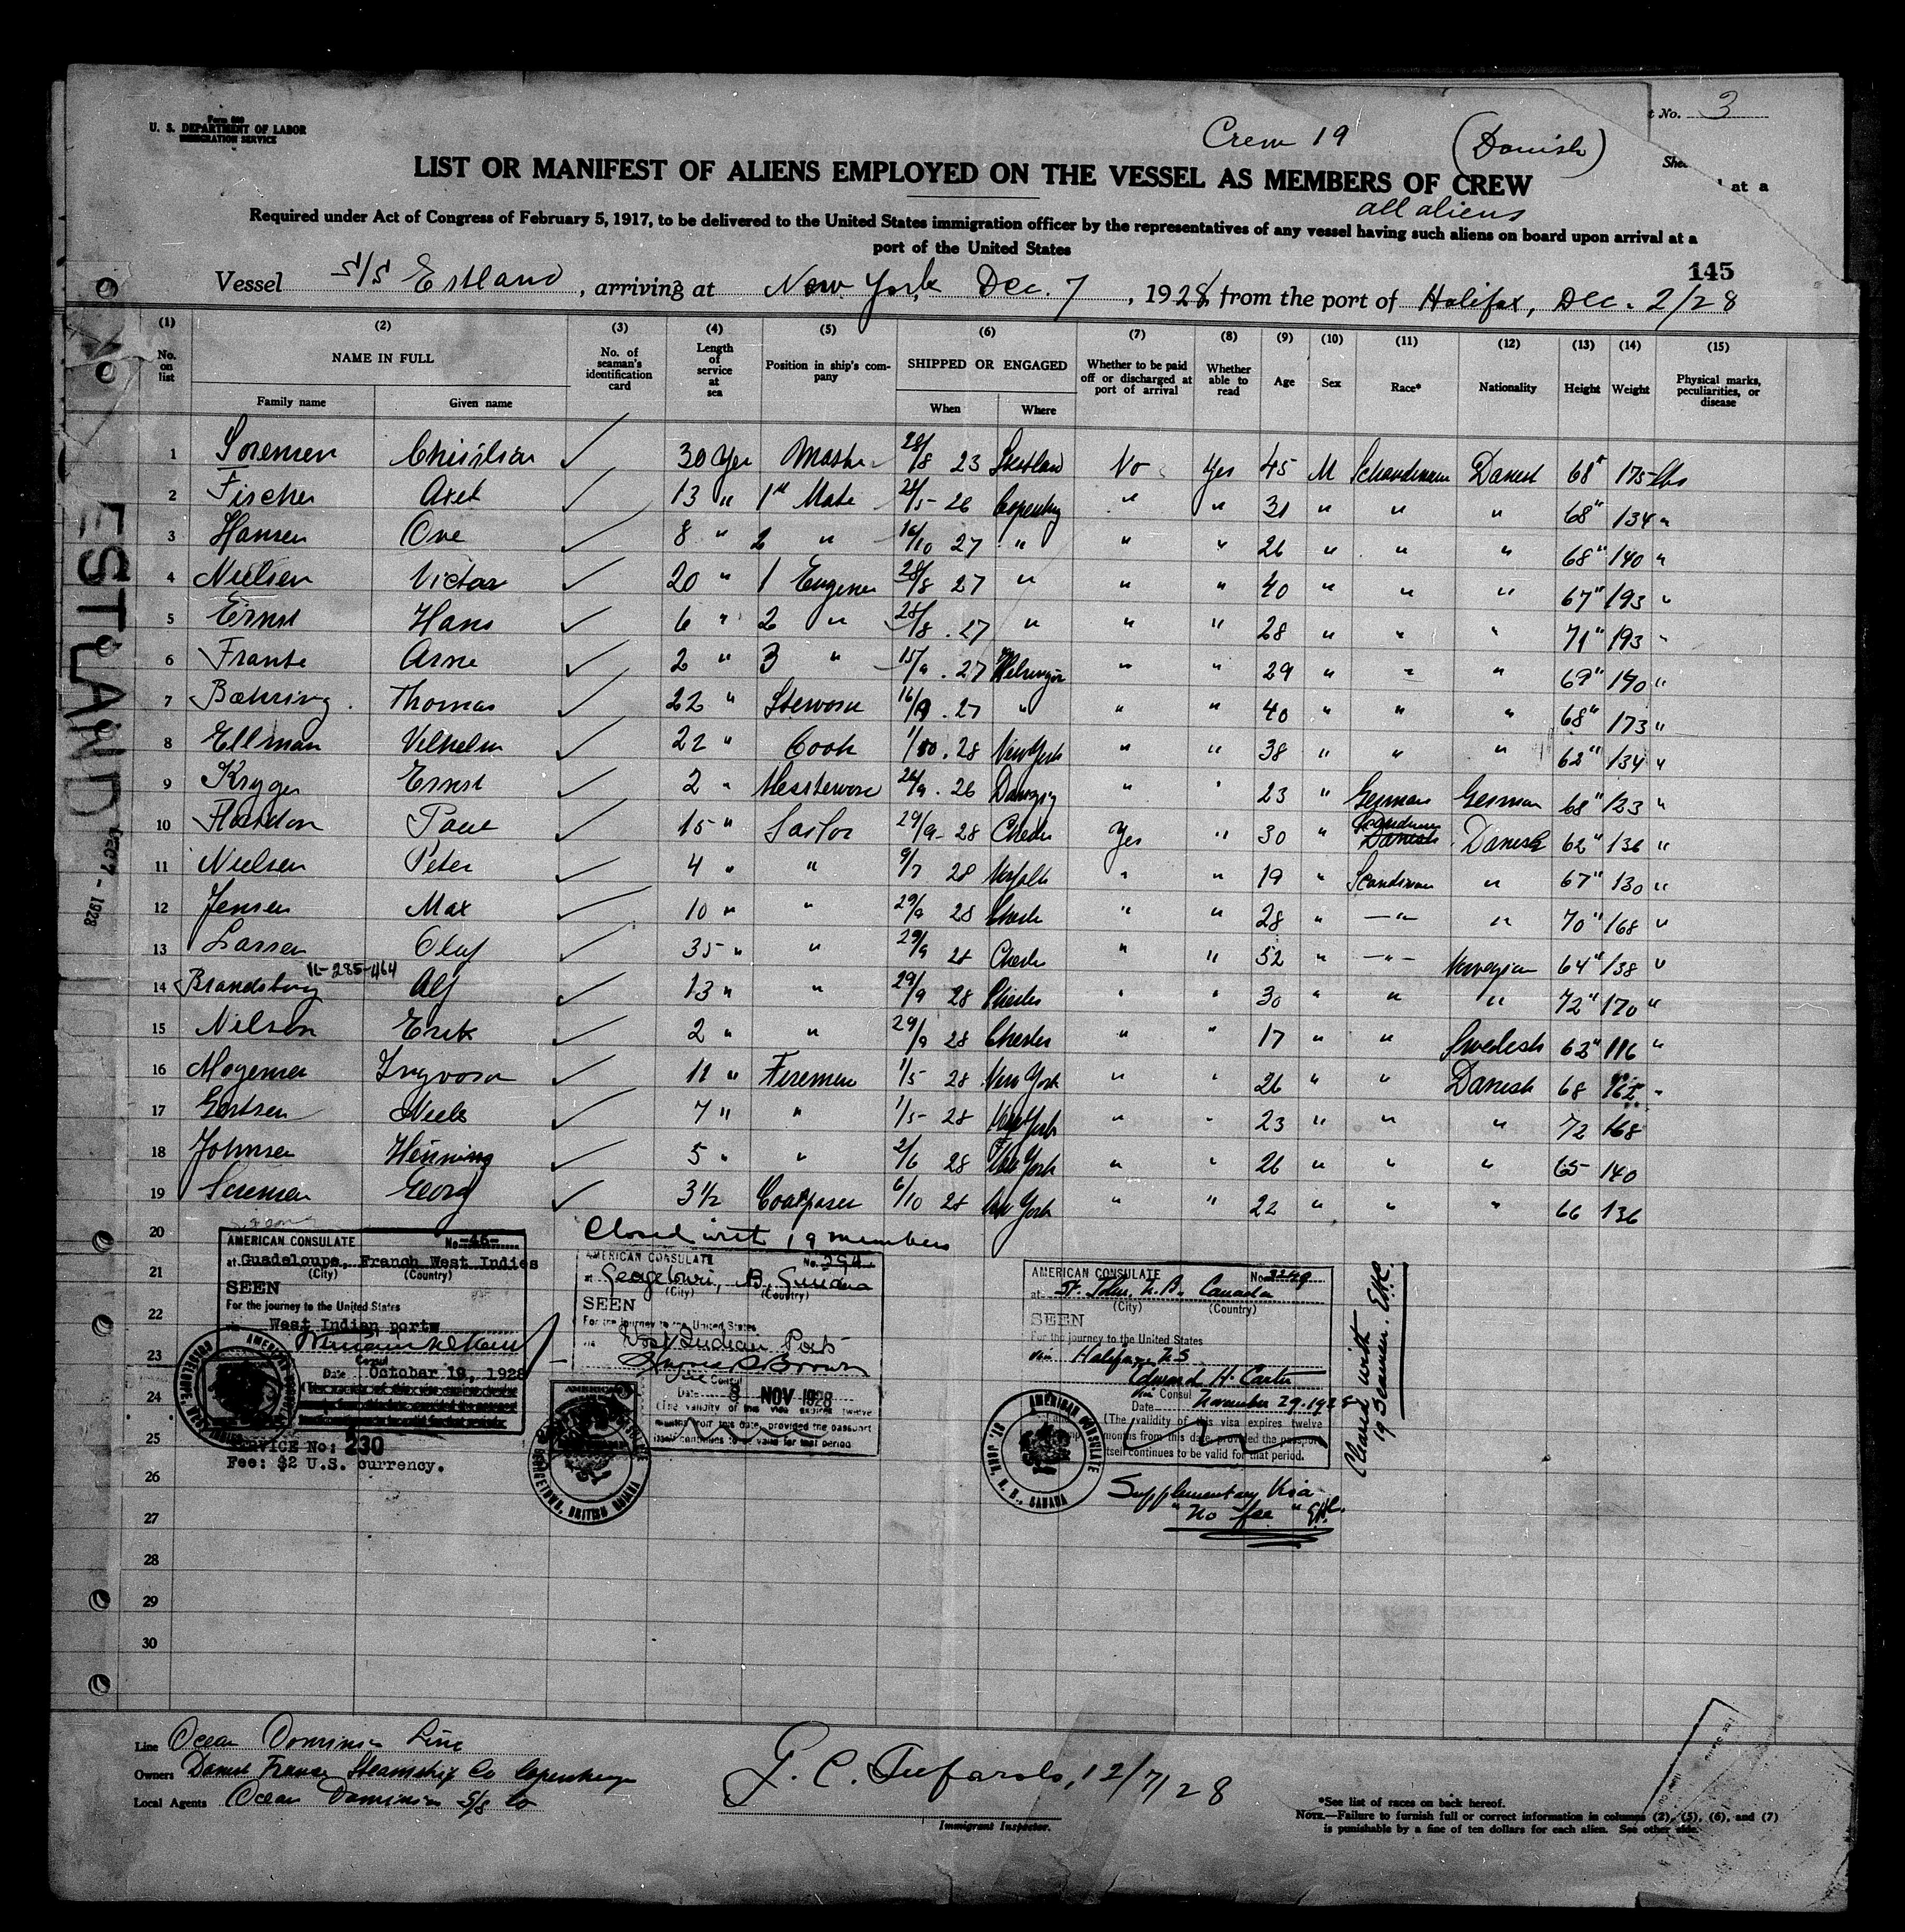 Form 689
U. S. DEPARTMENT OF LABOR
IMMIGRATION SERVICE
t No. 3
Crew 19 (Danish)
She
LIST OR MANIFEST OF ALIENS EMPLOYED ON THE VESSEL AS MEMBERS OF CREW
l at a
all aliens
Required under Act of Congress of February 5, 1917, to be delivered to the United States immigration officer by the representatives of any vessel having such aliens on board upon arrival at a
port of the United States
145
Vessel S/S Estland, arriving at New York Dec. 7, 1928, from the port of Halifax, Dec. 2/28
(1) (2) (3) (4) (5) (6) (7) (8) (9) (10) (11) (12) (13) (14) (15)
No. on list NAME IN FULL No. of seaman's identification card Length of service at sea Position in ship's company SHIPPED OR ENGAGED Whether to be paid off or discharged at port of arrival Whether able to read Age Sex Race* Nationality Height Weight Physical marks, peculiarities, or disease
Family name Given name When Where
1 Sorensen Christian 30 Yer Master 28/8 23 No Yes 45 M 68" 175 lbs
2 Fischer Axel 13 " 1st Mate 26 " " 31 " " " 68" 134 "
3 Hansen Ove 8 " 2 " 16/10 27 " " " 26 " " " 68" 140 "
4 Nielsen Victor 20 " 1 28/8 27 " " " 40 " " " 67" 193 "
5 Ernst Hans 6 " 2 " 28/8 27 " " " 28 " " " 71" 193 "
6 Arne 2 " 3 " 15/9 27 Helsingör " " 29 " " " 69" 190 "
7 Bæhring Thomas 22 " 16/9 27 " " " 40 " " " 68" 173 "
8 Ellman Vilhelm 22 " Cook 1/10 28 New York " " 38 " " " 62" 134 "
9 Kryger Ernst 2 " 26 Danzig " " 23 " German German 68" 123 "
10 15 " Sailor 29/9 28 Chester Yes " 30 " Danish Danish 62" 136 "
11 Nielsen Peter 4 " " 9/7 28 Norfolk " " 19 " " 67" 130 "
12 Jensen Max 10 " " 29/9 28 Chester " " 28 " " " 70" 168 "
13 Larsen Olaf 35 " " 29/9 28 Chester " " 52 " " Norwegian 64" 138 "
14 Brandsborg Alf 13 " " 29/9 28 Chester " " 30 " " " 72" 170 "
15 Nilson Erik 2 " " 29/9 28 Chester " " 17 " " Swedish 62" 116 "
16 Mogensen 11 " Firemen 1/5 28 New York " " 26 " " Danish 68 162 "
17 Niels 7 " " 1/5 28 New York " " 23 " " " 72 168
18 Johnsen Henning 5 " " 2/6 28 New York " " 26 " " " 65 140
19 Sorensen Georg 3½ 6/10 28 New York " " 22 " " " 66 136
20
21
22
23
24
25
26
27
28
29
30
ESTLAND
DEC 7 - 1928
Closed with 19 members
AMERICAN CONSULATE No. -46-
at Guadeloupe, French West Indies
(City) (Country)
SEEN
For the journey to the United States
via West Indian ports
Consul
Date October 19, 1928
SERVICE No: 230
Fee: $2 U.S. currency.
AMERICAN CONSULATE No. 294
at Georgetown, B. Guiana
(City) (Country)
SEEN
For the journey to the United States
via West Indian Ports
Vice Consul
Date 8 NOV 1928
(The validity of this visa expires twelve
months from this date, provided the passport
itself continues to be valid for that period
AMERICAN CONSULATE
GEORGETOWN, BRITISH GUIANA
AMERICAN CONSULATE No.
at St. John, N.B. Canada
(City) (Country)
SEEN
For the journey to the United States
via Halifax, N.S.
Edward H. Carter
Vice Consul
Date November 29. 1928
(The validity of this visa expires twelve
months from this date, provided the passport
itself continues to be valid for that period.
AMERICAN CONSULATE
ST. JOHN, N. B., CANADA
Supplementary Visa
"No fee" EHC.
Cleared with
19 Seamen. EHC.
Line Ocean Dominion Line
Owners Steamship Co Copenhagen
Local Agents Ocean Dominion S/S Co
12/7/28
Immigrant Inspector.
*See list of races on back hereof.
NOTE.—Failure to furnish full or correct information in columns (2), (5), (6), and (7)
is punishable by a fine of ten dollars for each alien. See other side.